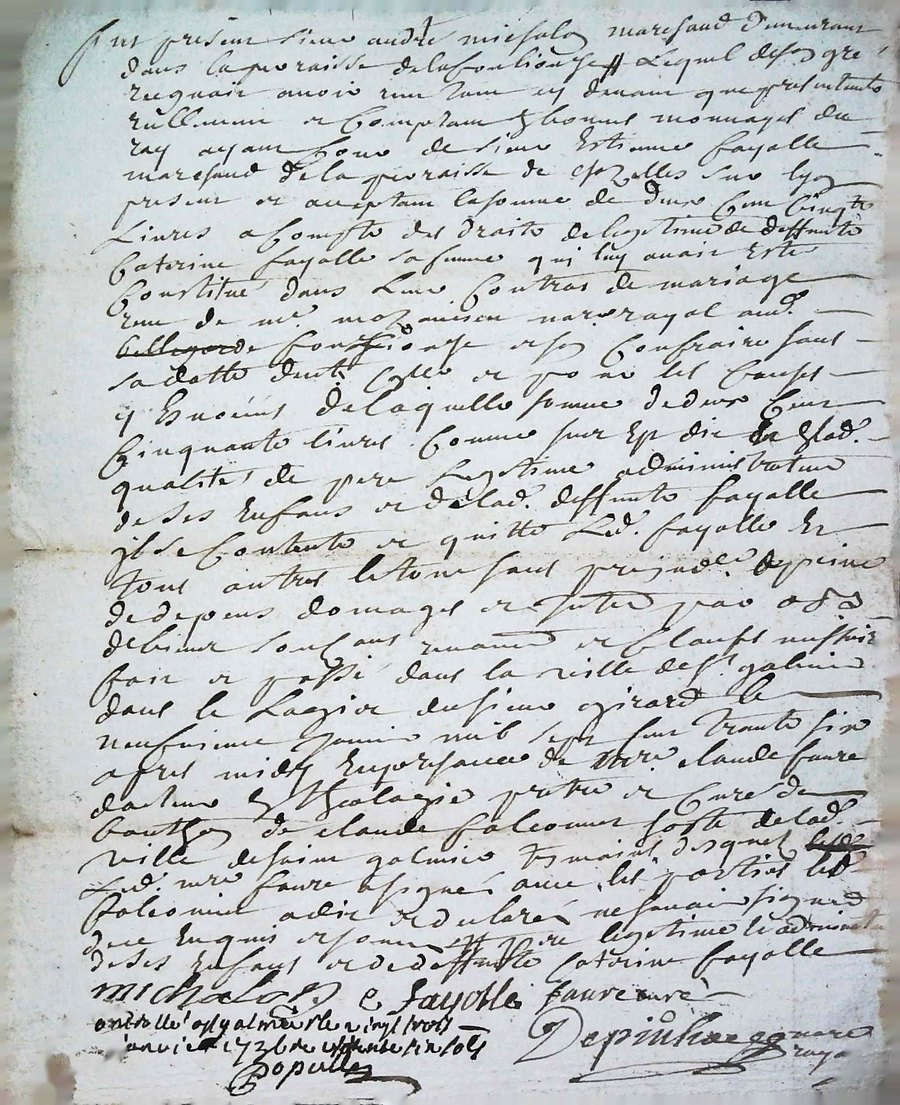 fut présent sieur andré michalon marchand demeurant
dans la parroisse de lafouliouse # Lequel de son gré
recognait avoir reçu tant cy devant que présentement
réellement et comptant en bonnes monnoyes du
roy ayant cours de sieur Estienne fayolle
marchand de la parroisse de chazelles sur lyon
présent et acceptant la somme de deux cent cinqte
Livres a compte des droits de légitime de deffunte
Caterine fayolle sa femme qui luy avait esté
Constitué dans leur Contrat de mariage
reçu de me notre royal aud.
bellegarde et son confraire sans
sa datte et pour les causes
y enoncées de laquelle somme de deux cent
cinquante livres comme sur est dit en lad.
qualité de pere légitime administrateur
de ses enfans et de lad. deffunte fayolle
il se contente et quitte led. fayolle et
tous autres le tout sans préjudce a peine
de depens domages et par
de biens soumissions renoncé et clauses
fait et passé dans la ville de st galmier
dans le Logis du sieur girard le
neufvieme janvier mil sept cent trente six
apres midy en presance de mre claude faure
docteur en theologie pretre et curé de
bouthéon de claude falconnet hoste de lad.
ville de saint galmier temoins desquels
Led. mre faure a signé avec les parties led.
falconnet a dit et declaré ne savoir signer
de ce enquis et sommé # pere legitime et administr
de ses enfans et de deffunte Caterine fayolle
michalon e fayolle faure curé
controllé a st galmier le vingt trois
janvier 1736 reçu sols
Depinhac notre
royal
Populle